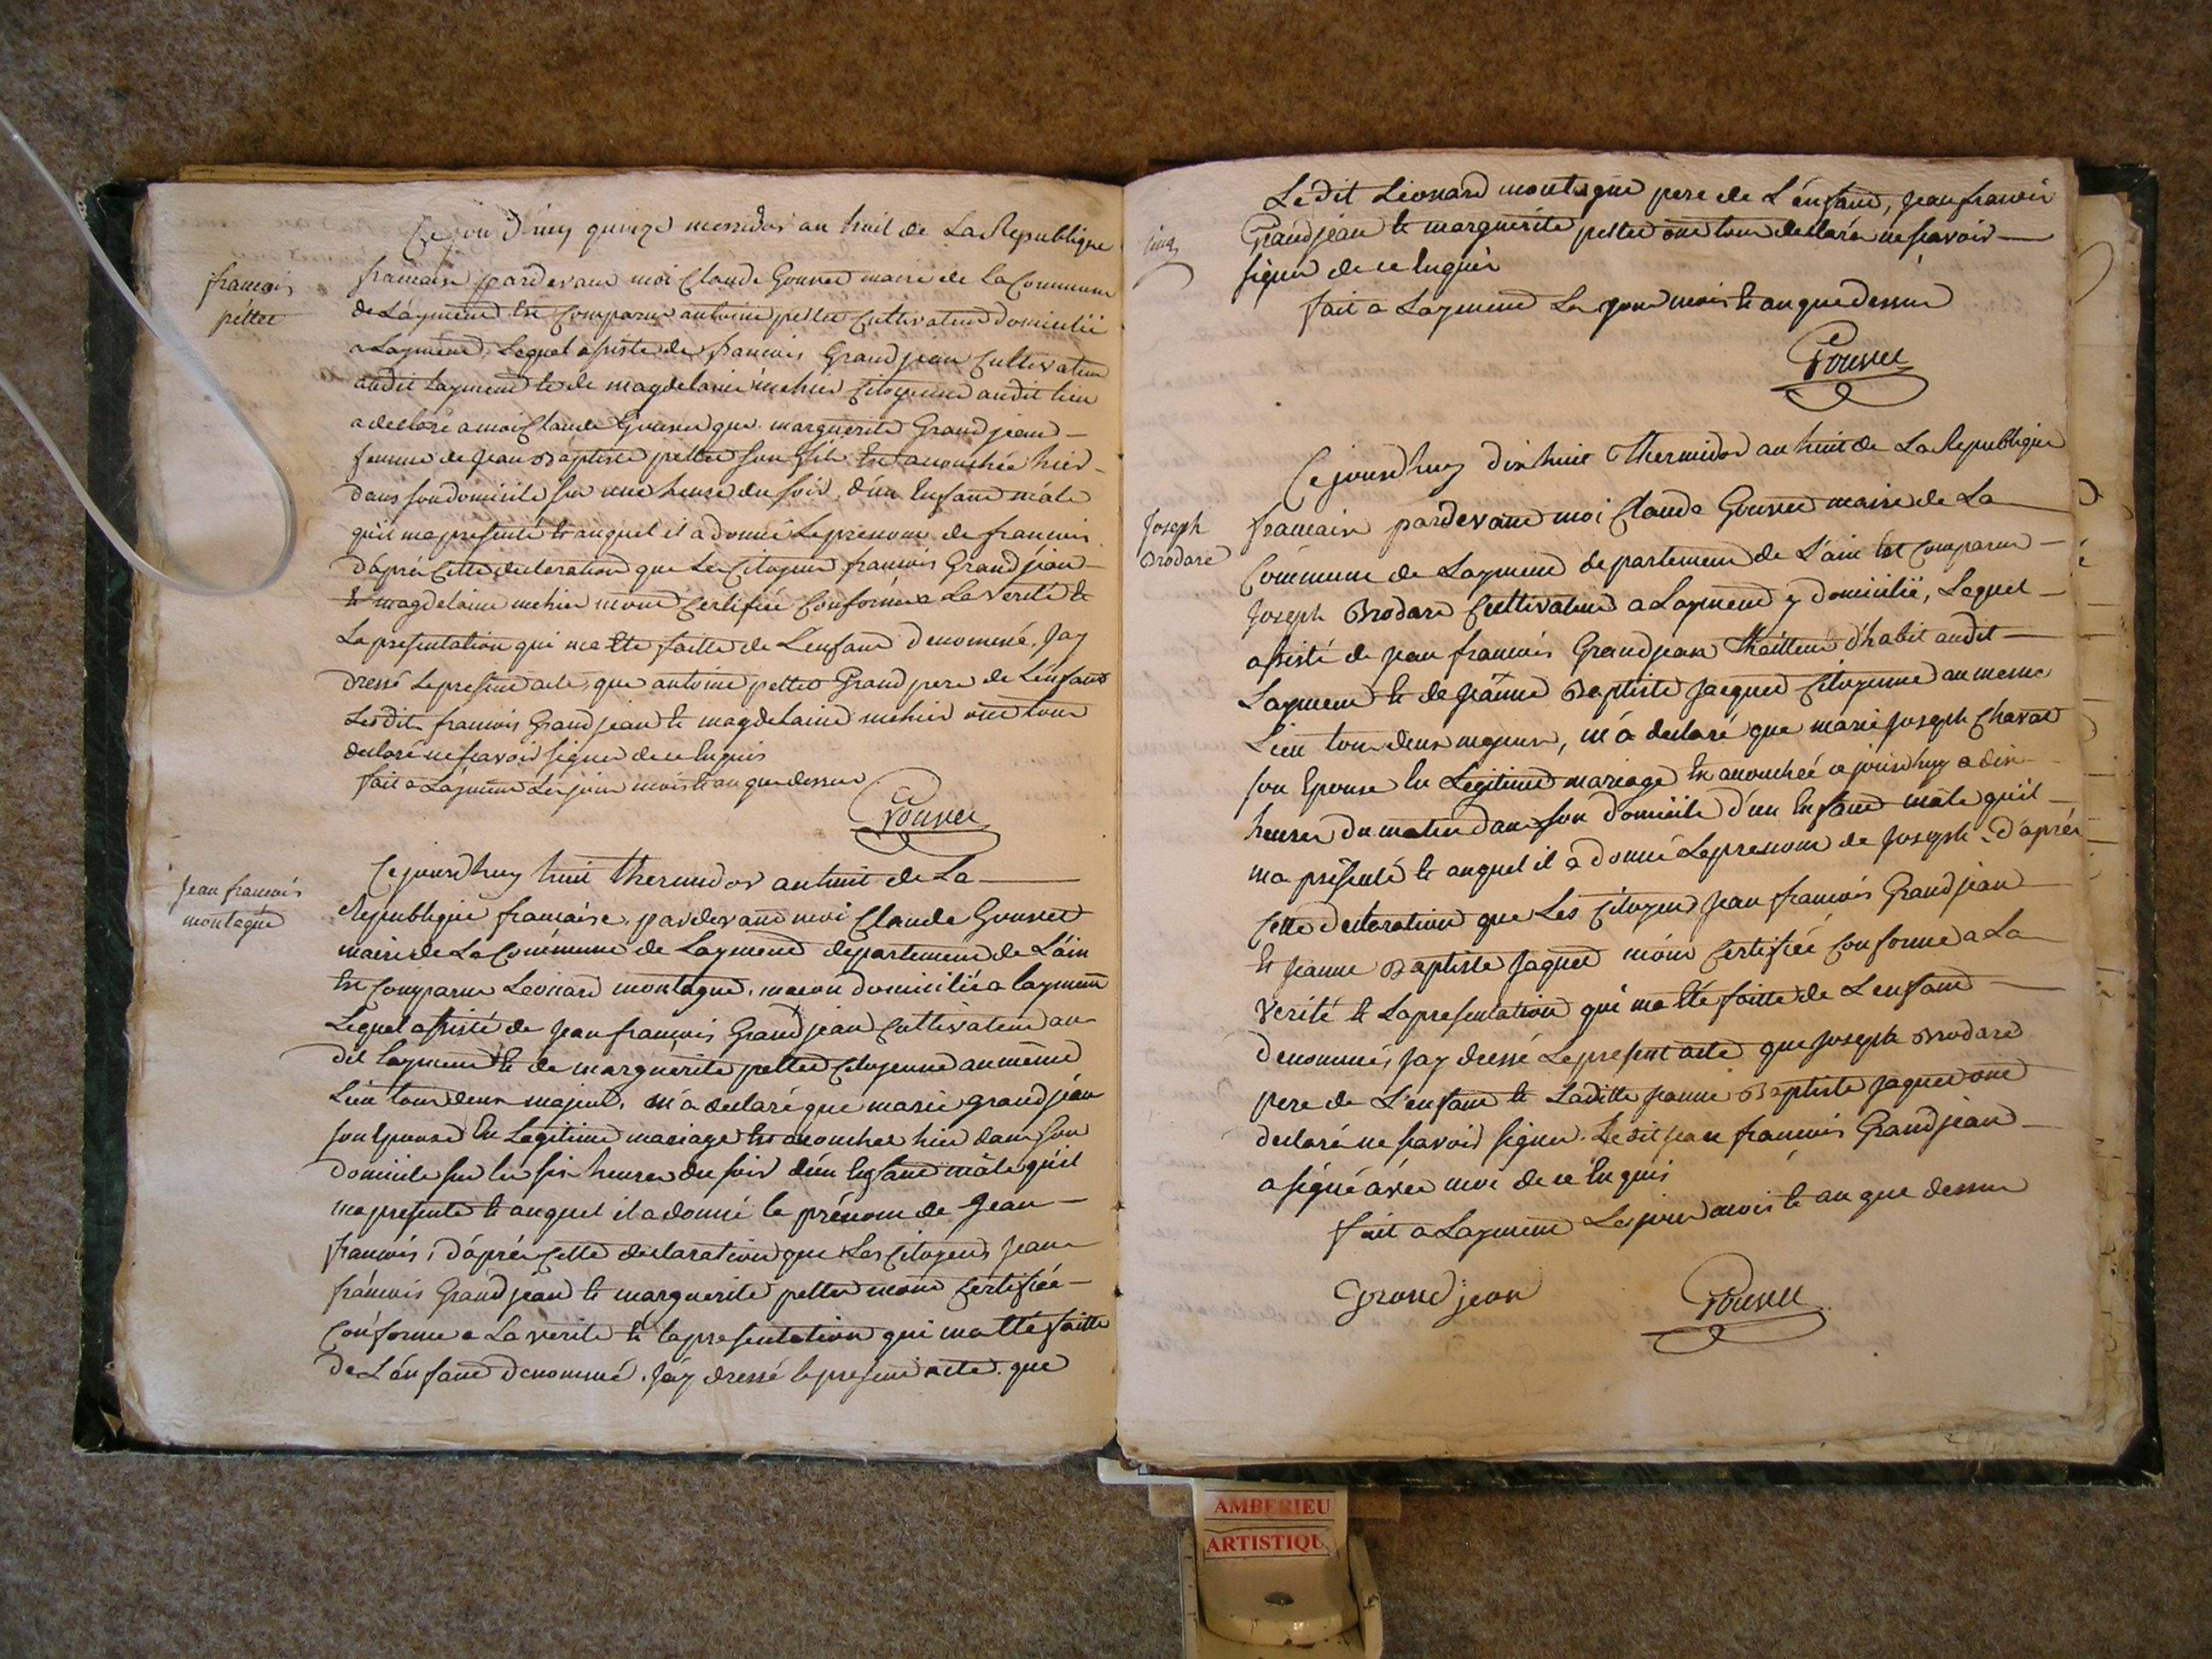 Ce jourd'huy quinze messidor an huit de La Republique
francois
pettet
francaise pardevant moi Claude Gouvet maire de La Commune
de Layment Est Comparu antoine pettet Cultivateur domicilié
a Layment, Lequel assisté de francois Grandjean Cultivateur
audit Layment et de magdelaine mehier Citoyenne audit lieu
a declaré a moi Claude Gouvet que marguerite Grandjean —
femme de Jean Baptiste pettet son fils Est accouchée hier —
dans son domicile sur une heure du soir, d'un Enfant mâle
qu'il ma presenté et auquel il a donné Le prenom de francois.
d'après Cette declaration que Les Citoyens francois Grandjean —
Et magdelaine mehier mont Certifiée Conforme a La verité et
La presentation qui ma Eté faitte de L'enfant denommé. Jay
dressé Le present acte, que antoine pettet Grand pere de L'enfant
Lesdit francois Grandjean et magdelaine mehier ont tous
declaré ne scavoir signer de ce Enquis
fait a Layment Les jour mois et an que dessus
Gouvet
Jean francois
montagne
Ce jourd'huy huit thermidor an huit de La —
Republique francaise, pardevant moi Claude Gouvet
maire de La Commune de Layment departement de L'ain
Est Comparu Leonard montagne, macon domicilié a layment
Lequel assisté de Jean francois Grandjean Cultivateur au
dit Layment et de marguerite pettet Citoyenne au même
Lieu tous deux majeurs, m'a declaré que marie grandjean
son Epouse En Legitime mariage Est accouchee hier dans son
domicile sur les six heures du soir d'un Enfant mâle qu'il
ma presente et auquel il a donné le prénom de Jean —
francois, d'après Cette declaration que Les Citoyens Jean
francois Grandjean et marguerite pettet mont Certifiée —
Conforme a La verite et la presentation qui ma Eté faitte
de L'enfant denommé. Jay dressé le present acte. que
cinq
Le dit Leonard montagne pere de L'enfant, Jean francois
Grandjean et marguerite pettet ont tous declaré ne scavoir —
signer de ce Enquis
fait a Layment Les jour mois et an que dessus
Gouvet
Ce jourd'huy dix huit Thermidor an huit de La Republique
Joseph
Brodare
francaise pardevant moi Claude Gouvet maire de La
Commune de Layment departement de L'ain Est Comparu —
Joseph Brodare Cultivateur a Layment y domicilié, Lequel —
assisté de Jean francois Grandjean thailleur d'habit audit —
Layment et de Jeanne Baptiste Jaquet Citoyenne au meme
Lieu tous deux majeurs, m'a declaré que marie Joseph Chavat
son Epouse En Legitime mariage Est accouchée ce jourd'huy a dix
heures du matin dans son domicile d'un Enfant mâle qu'il —
ma présenté et auquel il a donné Le prenom de Joseph. d'après
Cette declaration que Les Citoyens Jean francois Grandjean
Et Jeanne Baptiste Jaquet mont Certifiée Conforme a La
verité et La presentation qui ma Eté faitte de L'enfant —
denommé, Jay dressé Le present acte que Joseph Brodare
pere de L'enfant et Laditte Jeanne Baptiste Jaquet ont
declaré ne scavoir signer. Le dit Jean francois Grandjean —
a signé avec moi de ce Enquis
fait a Layment Les jour mois et an que dessus
Grand jean
Gouvet
AMBERIEU
ARTISTIQU